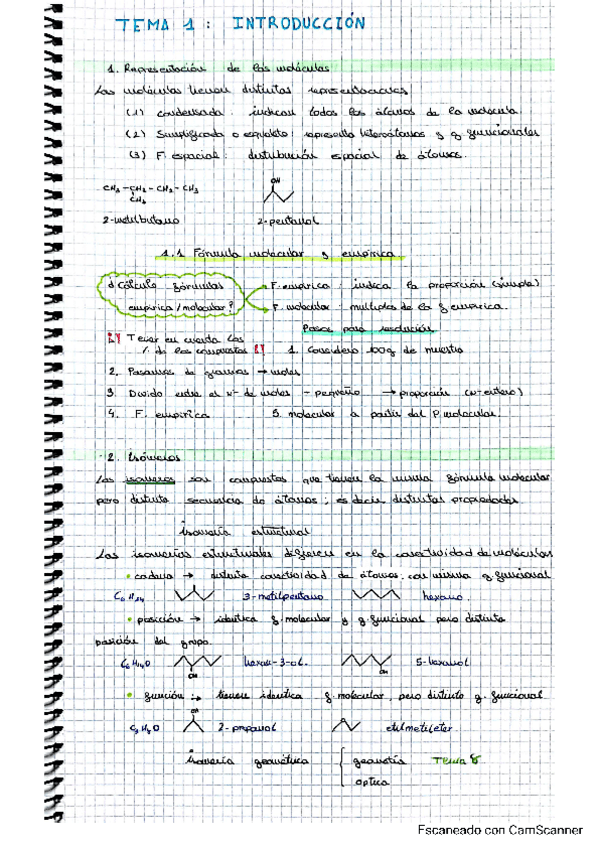 TEMA 1 : INTRODUCCIÓN
1. Representación de las moléculas
Las moléculas tienen distintas representaciones
(1) condensada : indican todos los átomos de la molécula
(2) Simplificada o esqueleto : representa heteroátomos y g. funcionales
(3) F. espacial : distribución espacial de átomos.
CH3 - CH2 - CH2 - CH3
CH3
OH
2-metilbutano 2-pentanol
1.1 Fórmula molecular y empírica
¿Cálculo fórmulas empírica / molecular?
F. empírica : indica la proporción (simple)
F. molecular : múltiplos de la f. empírica.
Pasos para resolución
Tener en cuenta las % de los compuestos
1. Considero 100g de muestra
2. Pasamos de gramos → moles
3. Divido entre el nº de moles - pequeño → proporción (nº entero)
4. F. empírica 5. molecular a partir del P. molecular.
2. Isómeros
Los isómeros son compuestos que tienen la misma fórmula molecular
pero distinta secuencia de átomos ; es decir, distintas propiedades
Isomería estructural
Las isomerías estructurales difieren en la conectividad de moléculas
• cadena → distinta conectividad de átomos, con misma g. funcional
C6 H14 3-metilpentano hexano.
• posición → idéntica f. molecular y g. funcional pero distinta
posición del grupo
C6 H14O hexan-3-ol. 5-hexanol
OH OH
• función : → tienen idéntica f. molecular, pero distinto g. funcional
OH
C3 H8O 2-propanol etilmetileter.
Isomería geométrica geometría Tema 8
óptica
Escaneado con CamScanner